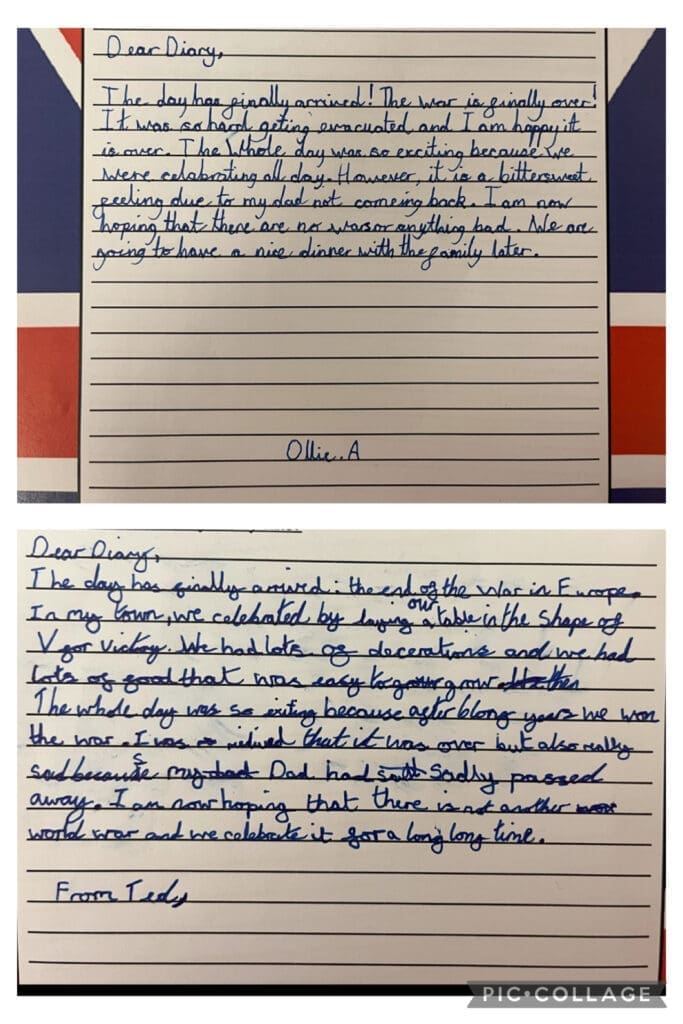 Dear Diary,
The day has finally arrived! The war is finally over!
It was so hard geting evacuated and I am happy it
is over. The Whole day was so exciting because we
were celabrating all day. However, it is a bittersweet
feeling due to my dad not comeing back. I am now
hoping that there are no wars or anything bad. We are
going to have a nice dinner with the family later.
Ollie.A
Dear Diary,
The day has finally arrived: the end of the war in Europe.
In my town, we celebrated by laying our table in the shape of
V for victory. We had lots of decerations and we had
lots of food that was easy to grow
The whole day was so exiting because after 6 long years we won
the war. I was relived that it was over but also really
sad because my Dad had sadly passed
away. I am now hoping that there is not another
world war and we celebrate it for a long long time.
From Ted,
PIC•COLLAGE